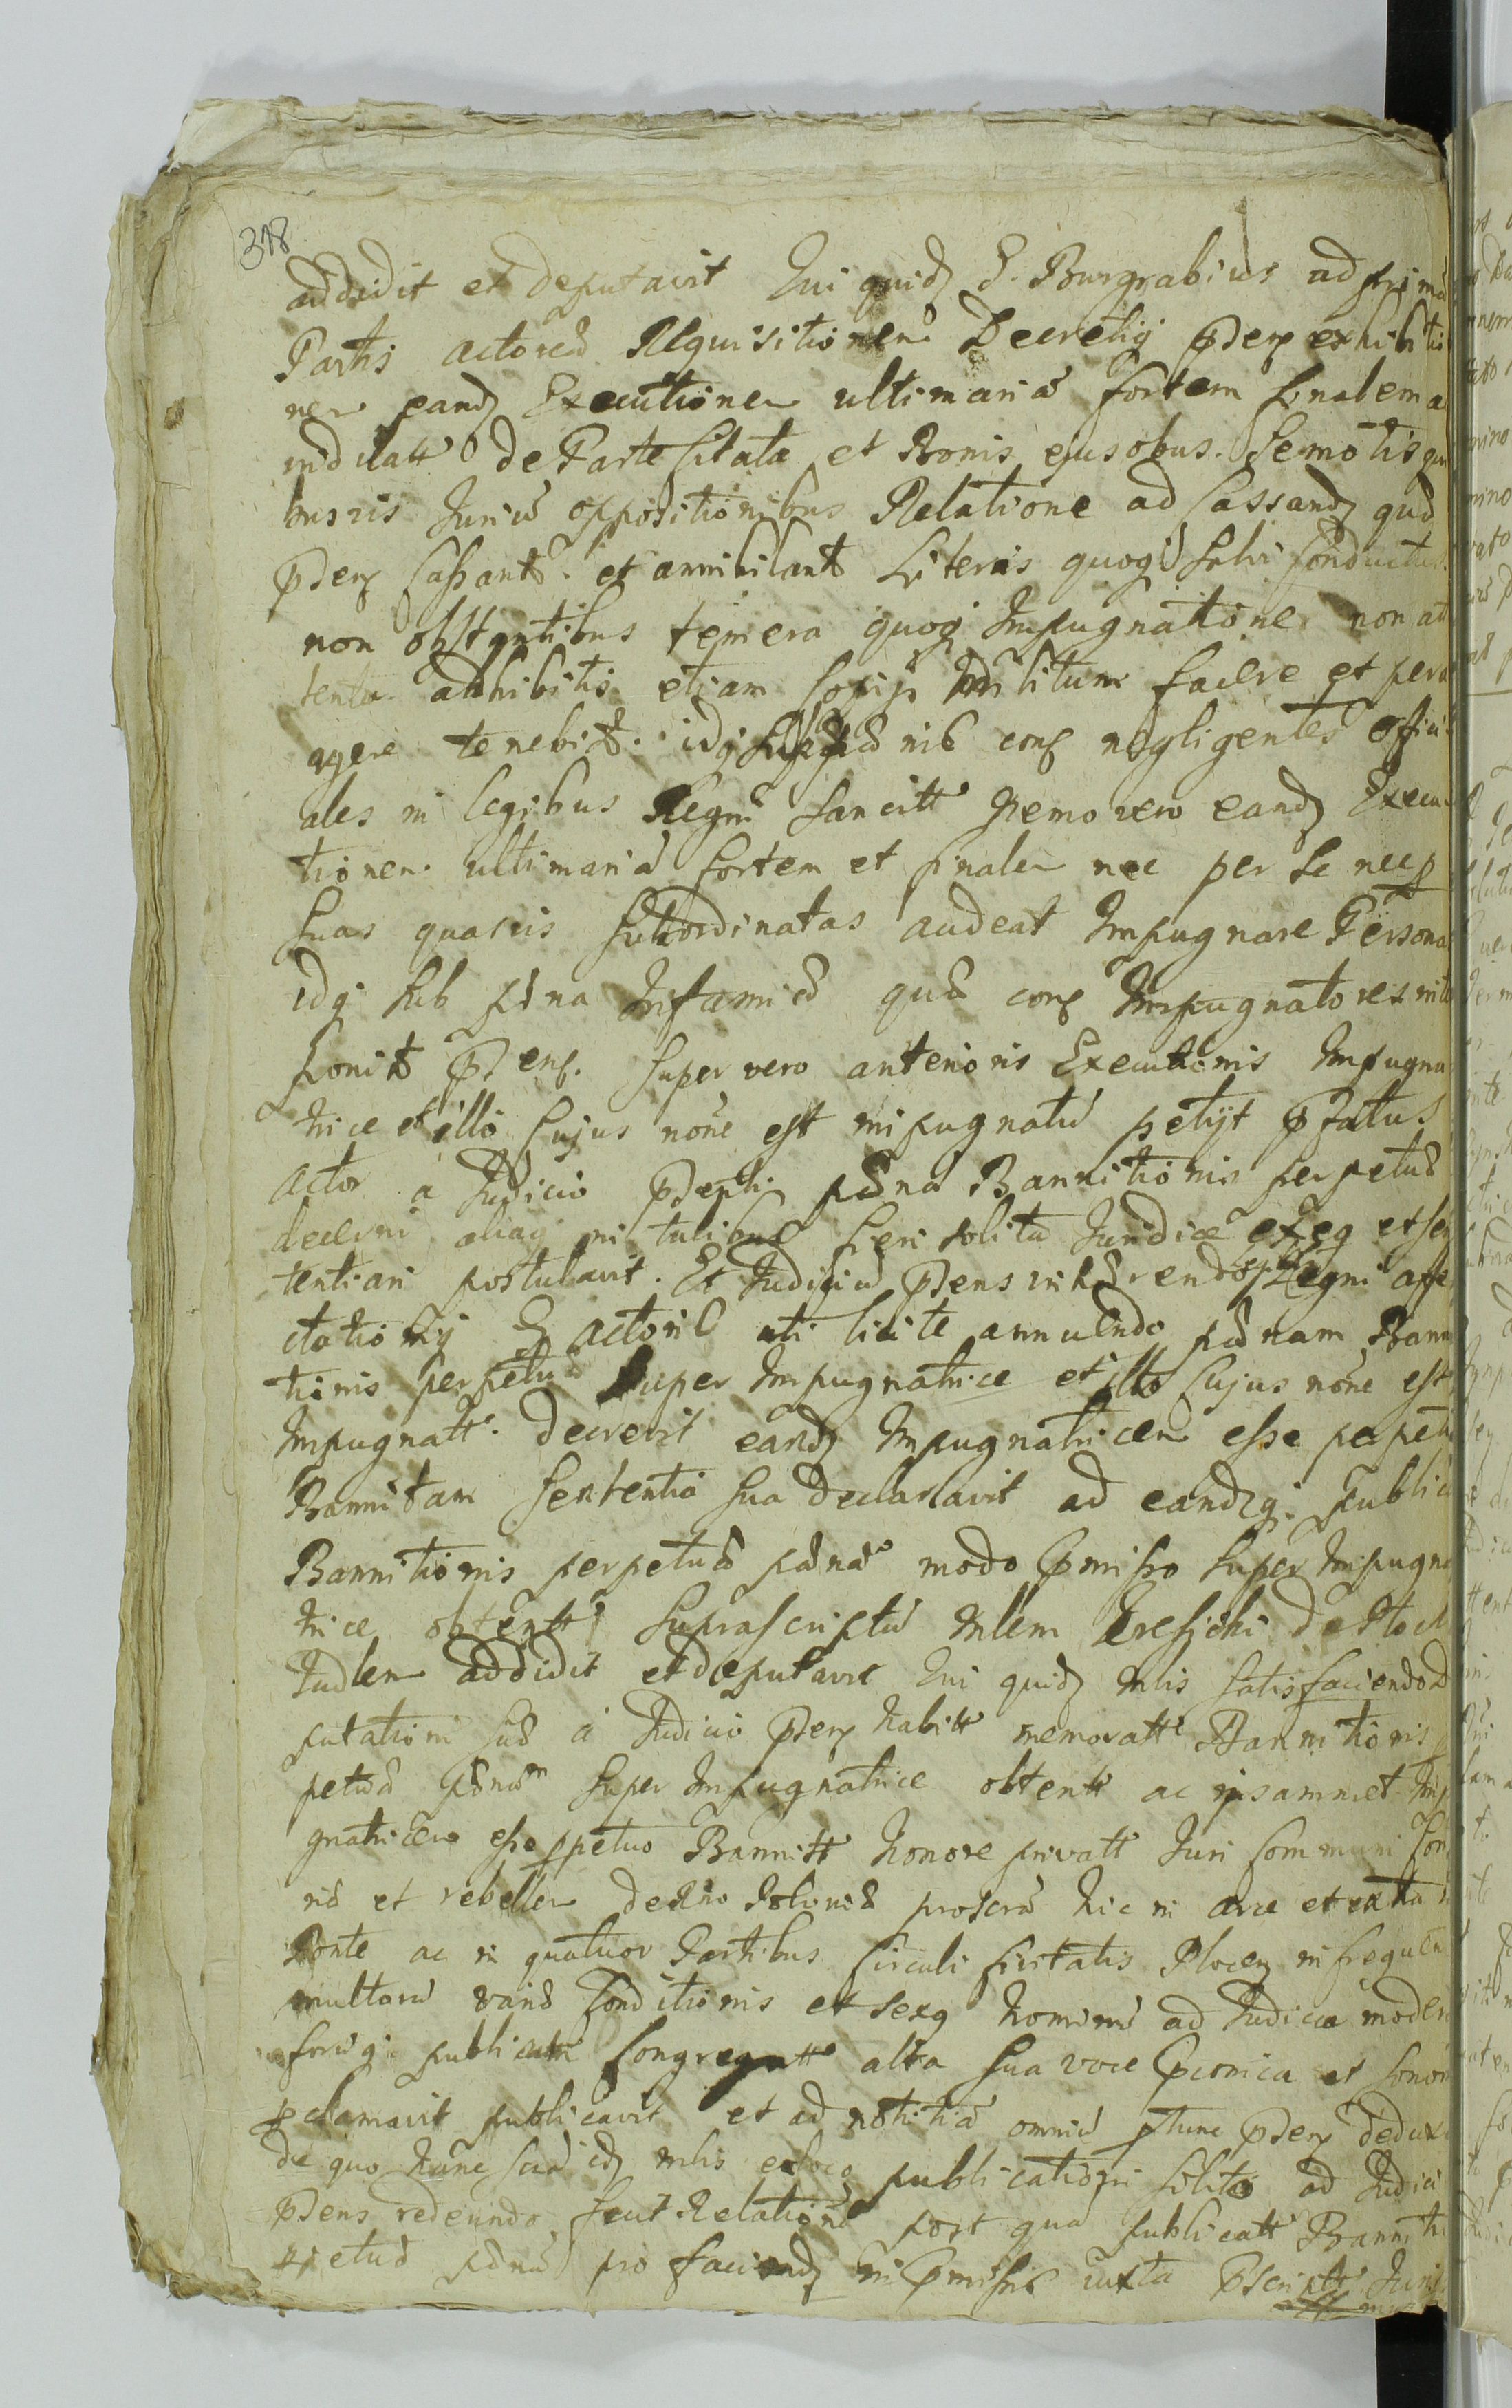 318
addidit et deputavit Qui quidz G. Burgrabius ad primā
Partis actoreæ Requisitionem Decretiq pñs exhibitio
nem eandz Executionem ultimariā fortem finalem a
iudicatt de Parte Citata et Bonis ejus obus. Semotis qui
busvis Juriū oppositionibus Relatione ad Cassandz qud
pñs Cassantr. et annihilantr Literis quoq Salvi Conductus
non obstantibus temera quoq Impugnatione non at
tenta adhibitis etiam Copijs Militum facere et per
agere tenebitr. idq sub pœnis cons negligentes offici
ales in legibus Regni sancitt Nemo vero eandz Execu
tionem ultimariā fortem et finalem nec per se nec p
suas quasvis subordinatas audeat Impugnare Persona
idq sub pœna Infamiæ quæ cons Impugnatores
ponitr pñs. Super vero anterioris Executionis Impugna
trice et illo Cujus noñe est impugnatū petijt pfatus
Actor a Judicio pñti pœnā Bannitionis perpetuæ
decerni aliaq in talibus fieri solita Juridicē exeq et sen
tentiari postulavit. Et Judiciū pñs inhærendo Legni affe
ctationiq G actoris uti licite annuendo pœnam Banni
tionis perpetuæ super Impugnatrice et illo Cujus noñe est
Impugnatt. decrevit eandz Impugnatricem esse perpetu
Bannitam Sententia sua declaravit ad eandzq. publica
Bannitionis perpetuæ pœnæ modo pmisso super Impugna
trice obtentt suprascriptū Mlem de Plock
Judlem addidit et deputavit Qui quidz Mlis satisfaciendo de
putationi suæ a Judicio pñs habitt memoratt Bannitionis p
petuæ pœnam super Impugnatrice obtentt ac ipsammet Imp
gnatricem esse ppetuo Bannitt honore privatt Juri Communi
et rebellem de Rno Poloniæ hic in arce et extra
Ponte ac in quatuor Partibus Circuli Civitatis Plocen in frequen
multorū variæ Conditionis et sexq hominū ad Judicia moder
foriq publicatt Congregatt alta sua voce pconica et sonor
pclamavit publicavit et ad notitiā omniū ptunc pñs deduxi
de quo hunc idz Mlis ex loco publicationi solito ad Judici
pñs redeundo fecit Relationē post quā publicatt Banniti
petuæ pœnā pro faciendz in pmissis iuxta pscriptt Juris